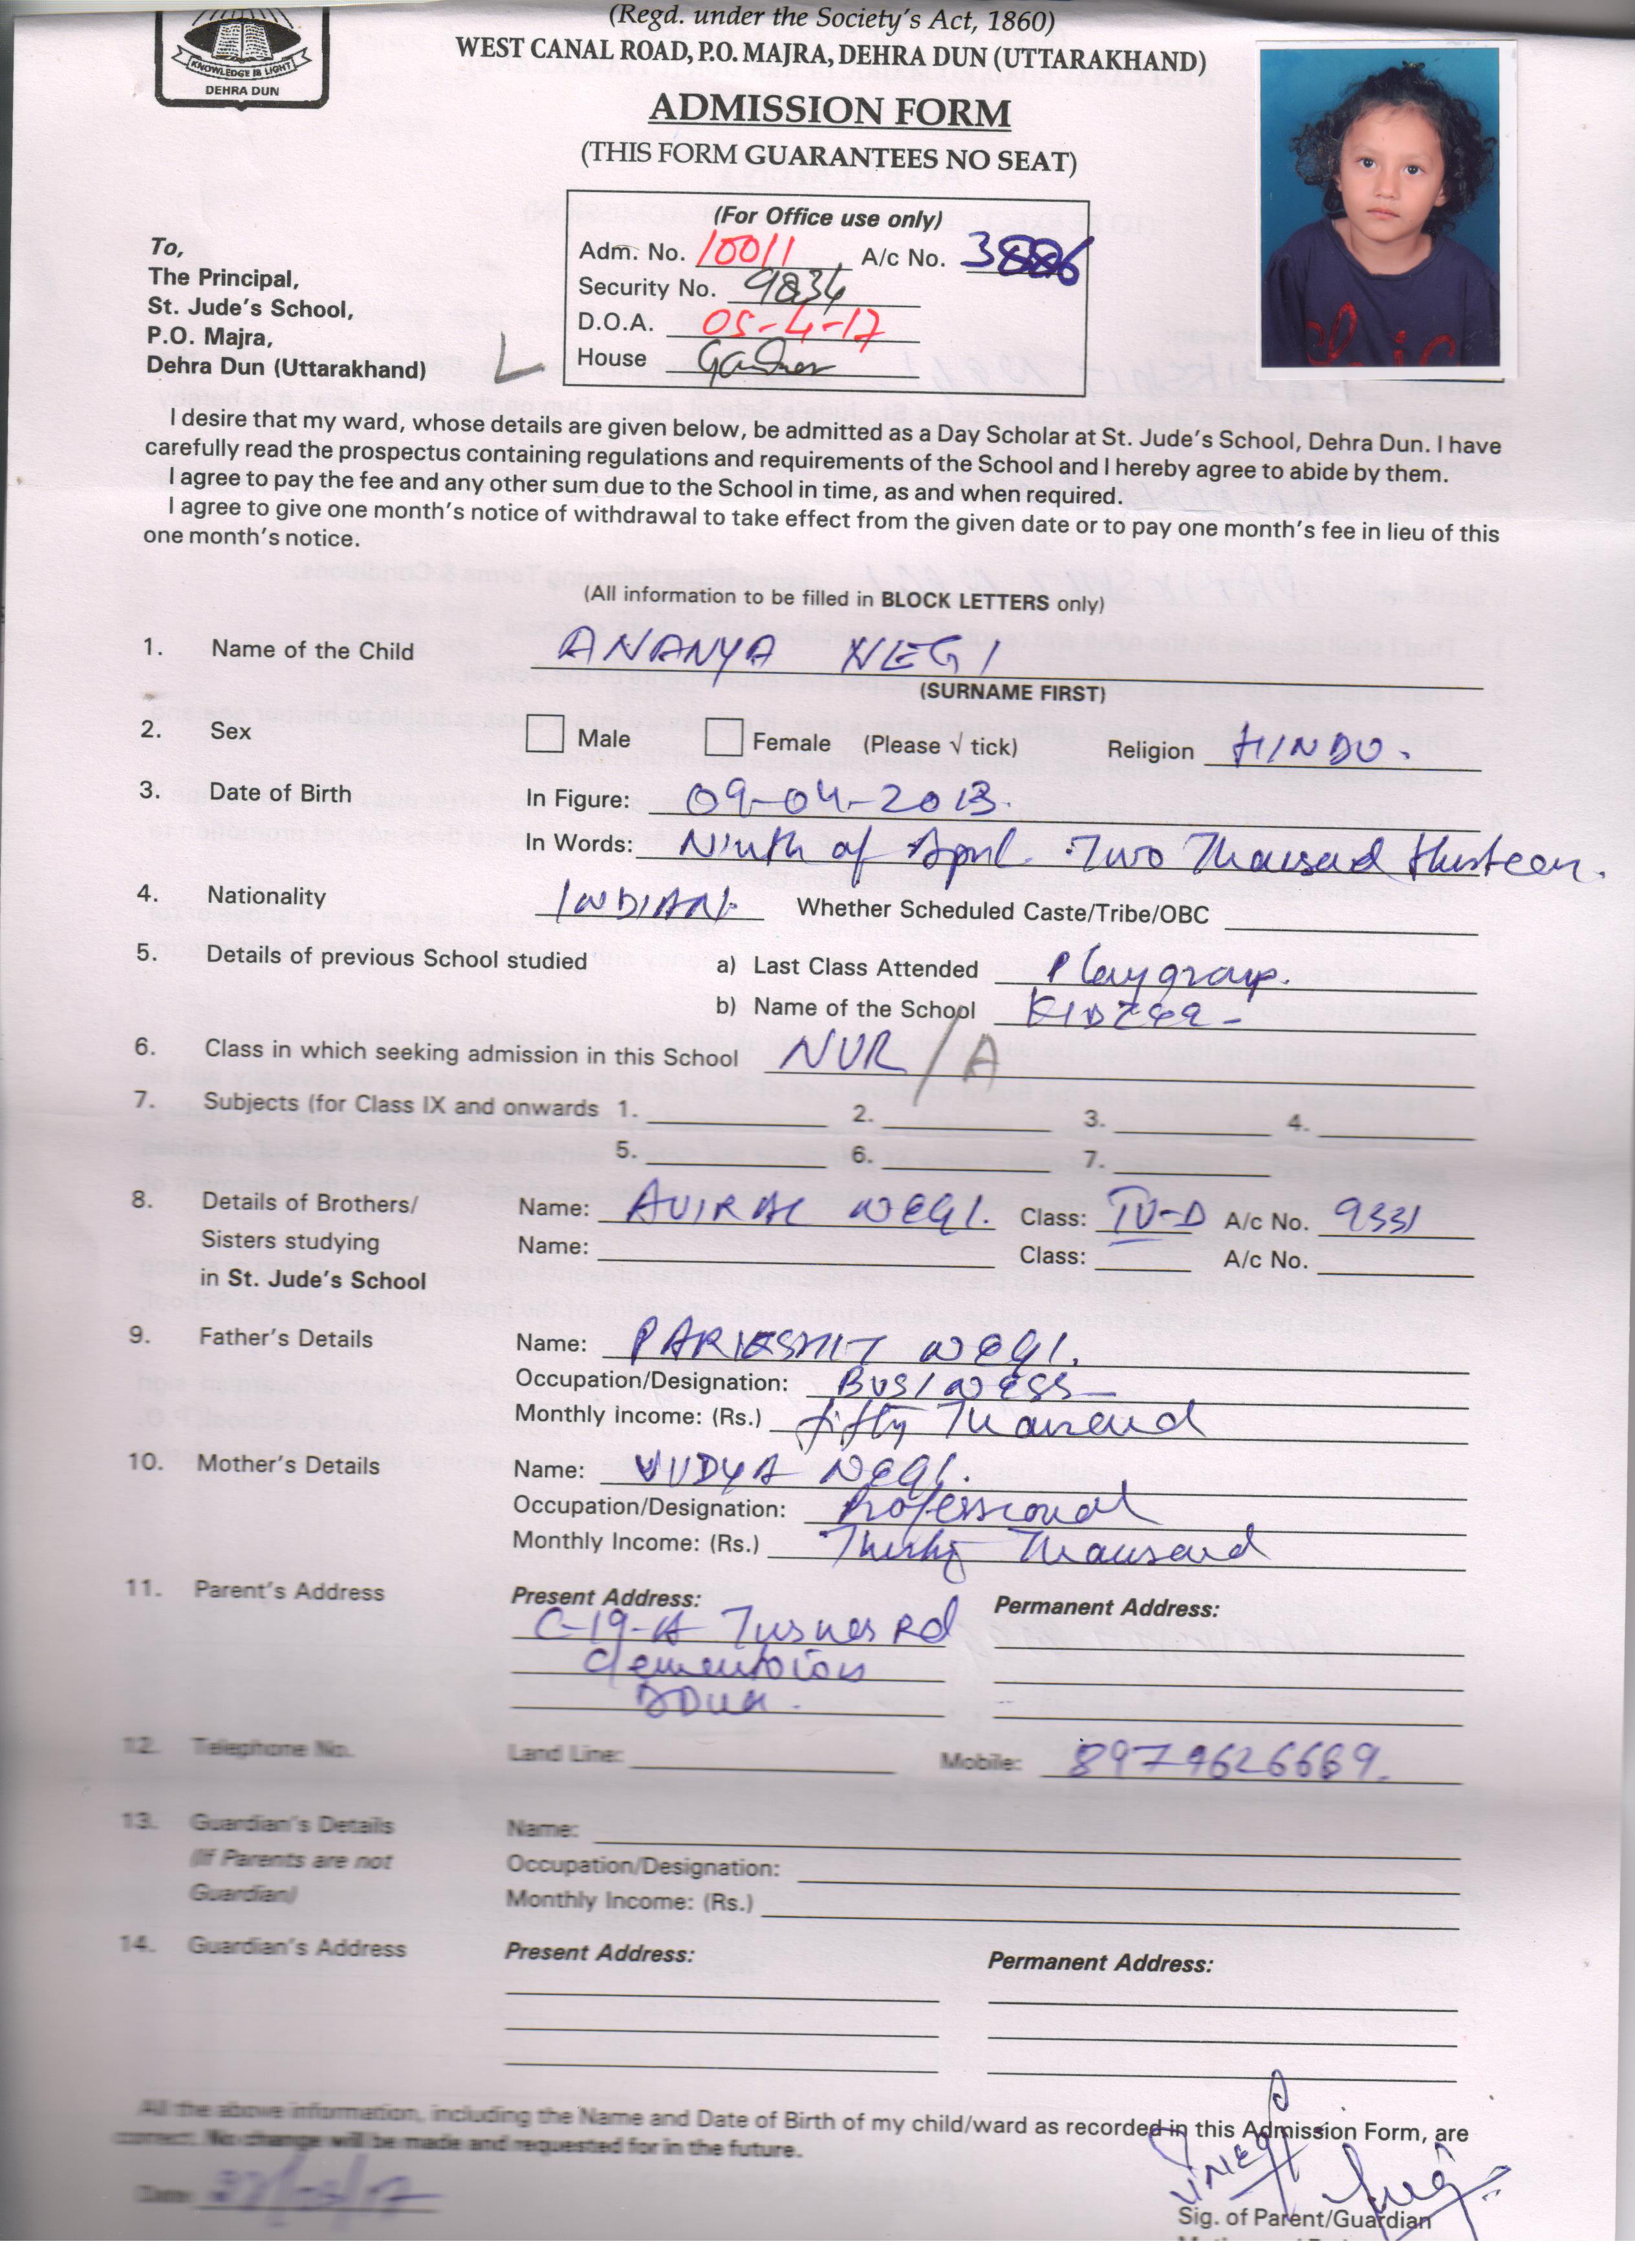 KNOWLEDGE IS LIGHT
DEHRA DUN
(Regd. under the Society's Act, 1860)
WEST CANAL ROAD, P.O. MAJRA, DEHRA DUN (UTTARAKHAND)
ADMISSION FORM
(THIS FORM GUARANTEES NO SEAT)
(For Office use only)
Adm. No. 10011 A/c No.
Security No. 9834
D.O.A. 05-4-17
House
To,
The Principal,
St. Jude's School,
P.O. Majra,
Dehra Dun (Uttarakhand)
I desire that my ward, whose details are given below, be admitted as a Day Scholar at St. Jude's School, Dehra Dun. I have
carefully read the prospectus containing regulations and requirements of the School and I hereby agree to abide by them.
I agree to pay the fee and any other sum due to the School in time, as and when required.
I agree to give one month's notice of withdrawal to take effect from the given date or to pay one month's fee in lieu of this
one month's notice.
(All information to be filled in BLOCK LETTERS only)
1. Name of the Child ANANYA NEGI
(SURNAME FIRST)
2. Sex Male Female (Please √ tick) Religion HINDU.
3. Date of Birth In Figure: 09-04-2013.
In Words: Ninth of April Two Thousand thirteen.
4. Nationality INDIAN. Whether Scheduled Caste/Tribe/OBC
5. Details of previous School studied a) Last Class Attended Playgroup.
b) Name of the School KIDZEE -
6. Class in which seeking admission in this School NUR/A
7. Subjects (for Class IX and onwards 1. 2. 3. 4.
5. 6. 7.
8. Details of Brothers/ Name: AVIRAL NEGI. Class: IV-D A/c No. 9331
Sisters studying Name: Class: A/c No.
in St. Jude's School
9. Father's Details Name: PARIKSHIT NEGI.
Occupation/Designation: BUSINESS
Monthly Income: (Rs.) fifty Thousand
10. Mother's Details Name: VIDYA NEGI.
Occupation/Designation: Professional
Monthly Income: (Rs.) Thirty Thousand
11. Parent's Address Present Address: Permanent Address:
C-19-A Turner Rd
Clementown
DDun.
12. Telephone No. Land Line: Mobile:
13. Guardian's Details Name:
(If Parents are not Occupation/Designation:
Guardian) Monthly Income: (Rs.)
14. Guardian's Address Present Address: Permanent Address:
All the above information, including the Name and Date of Birth of my child/ward as recorded in this Admission Form, are
correct. No change will be made and requested for in the future.
Date
VNEGI
Sig. of Parent/Guardian